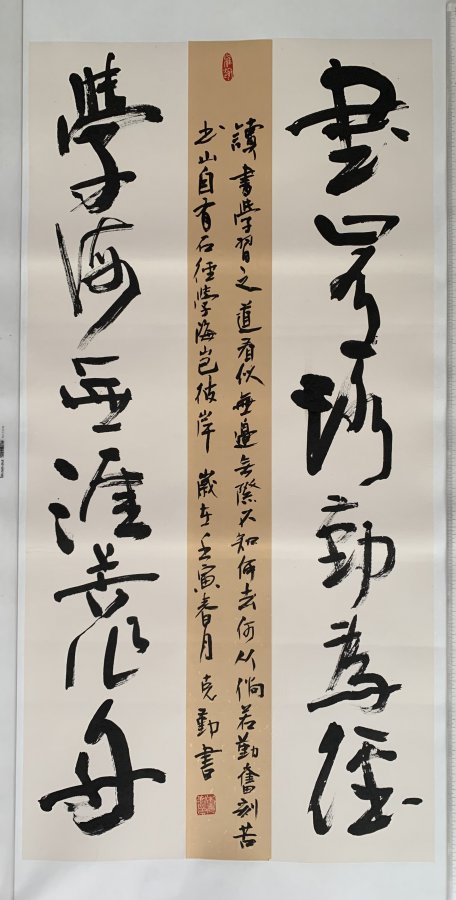 書山有路勤為徑
讀書學習之道看似無邊無際不知何去何從倘若勤奮刻苦
書山自有石徑學海豈彼岸 歲在壬寅春月 克勤書
學海無涯苦作舟